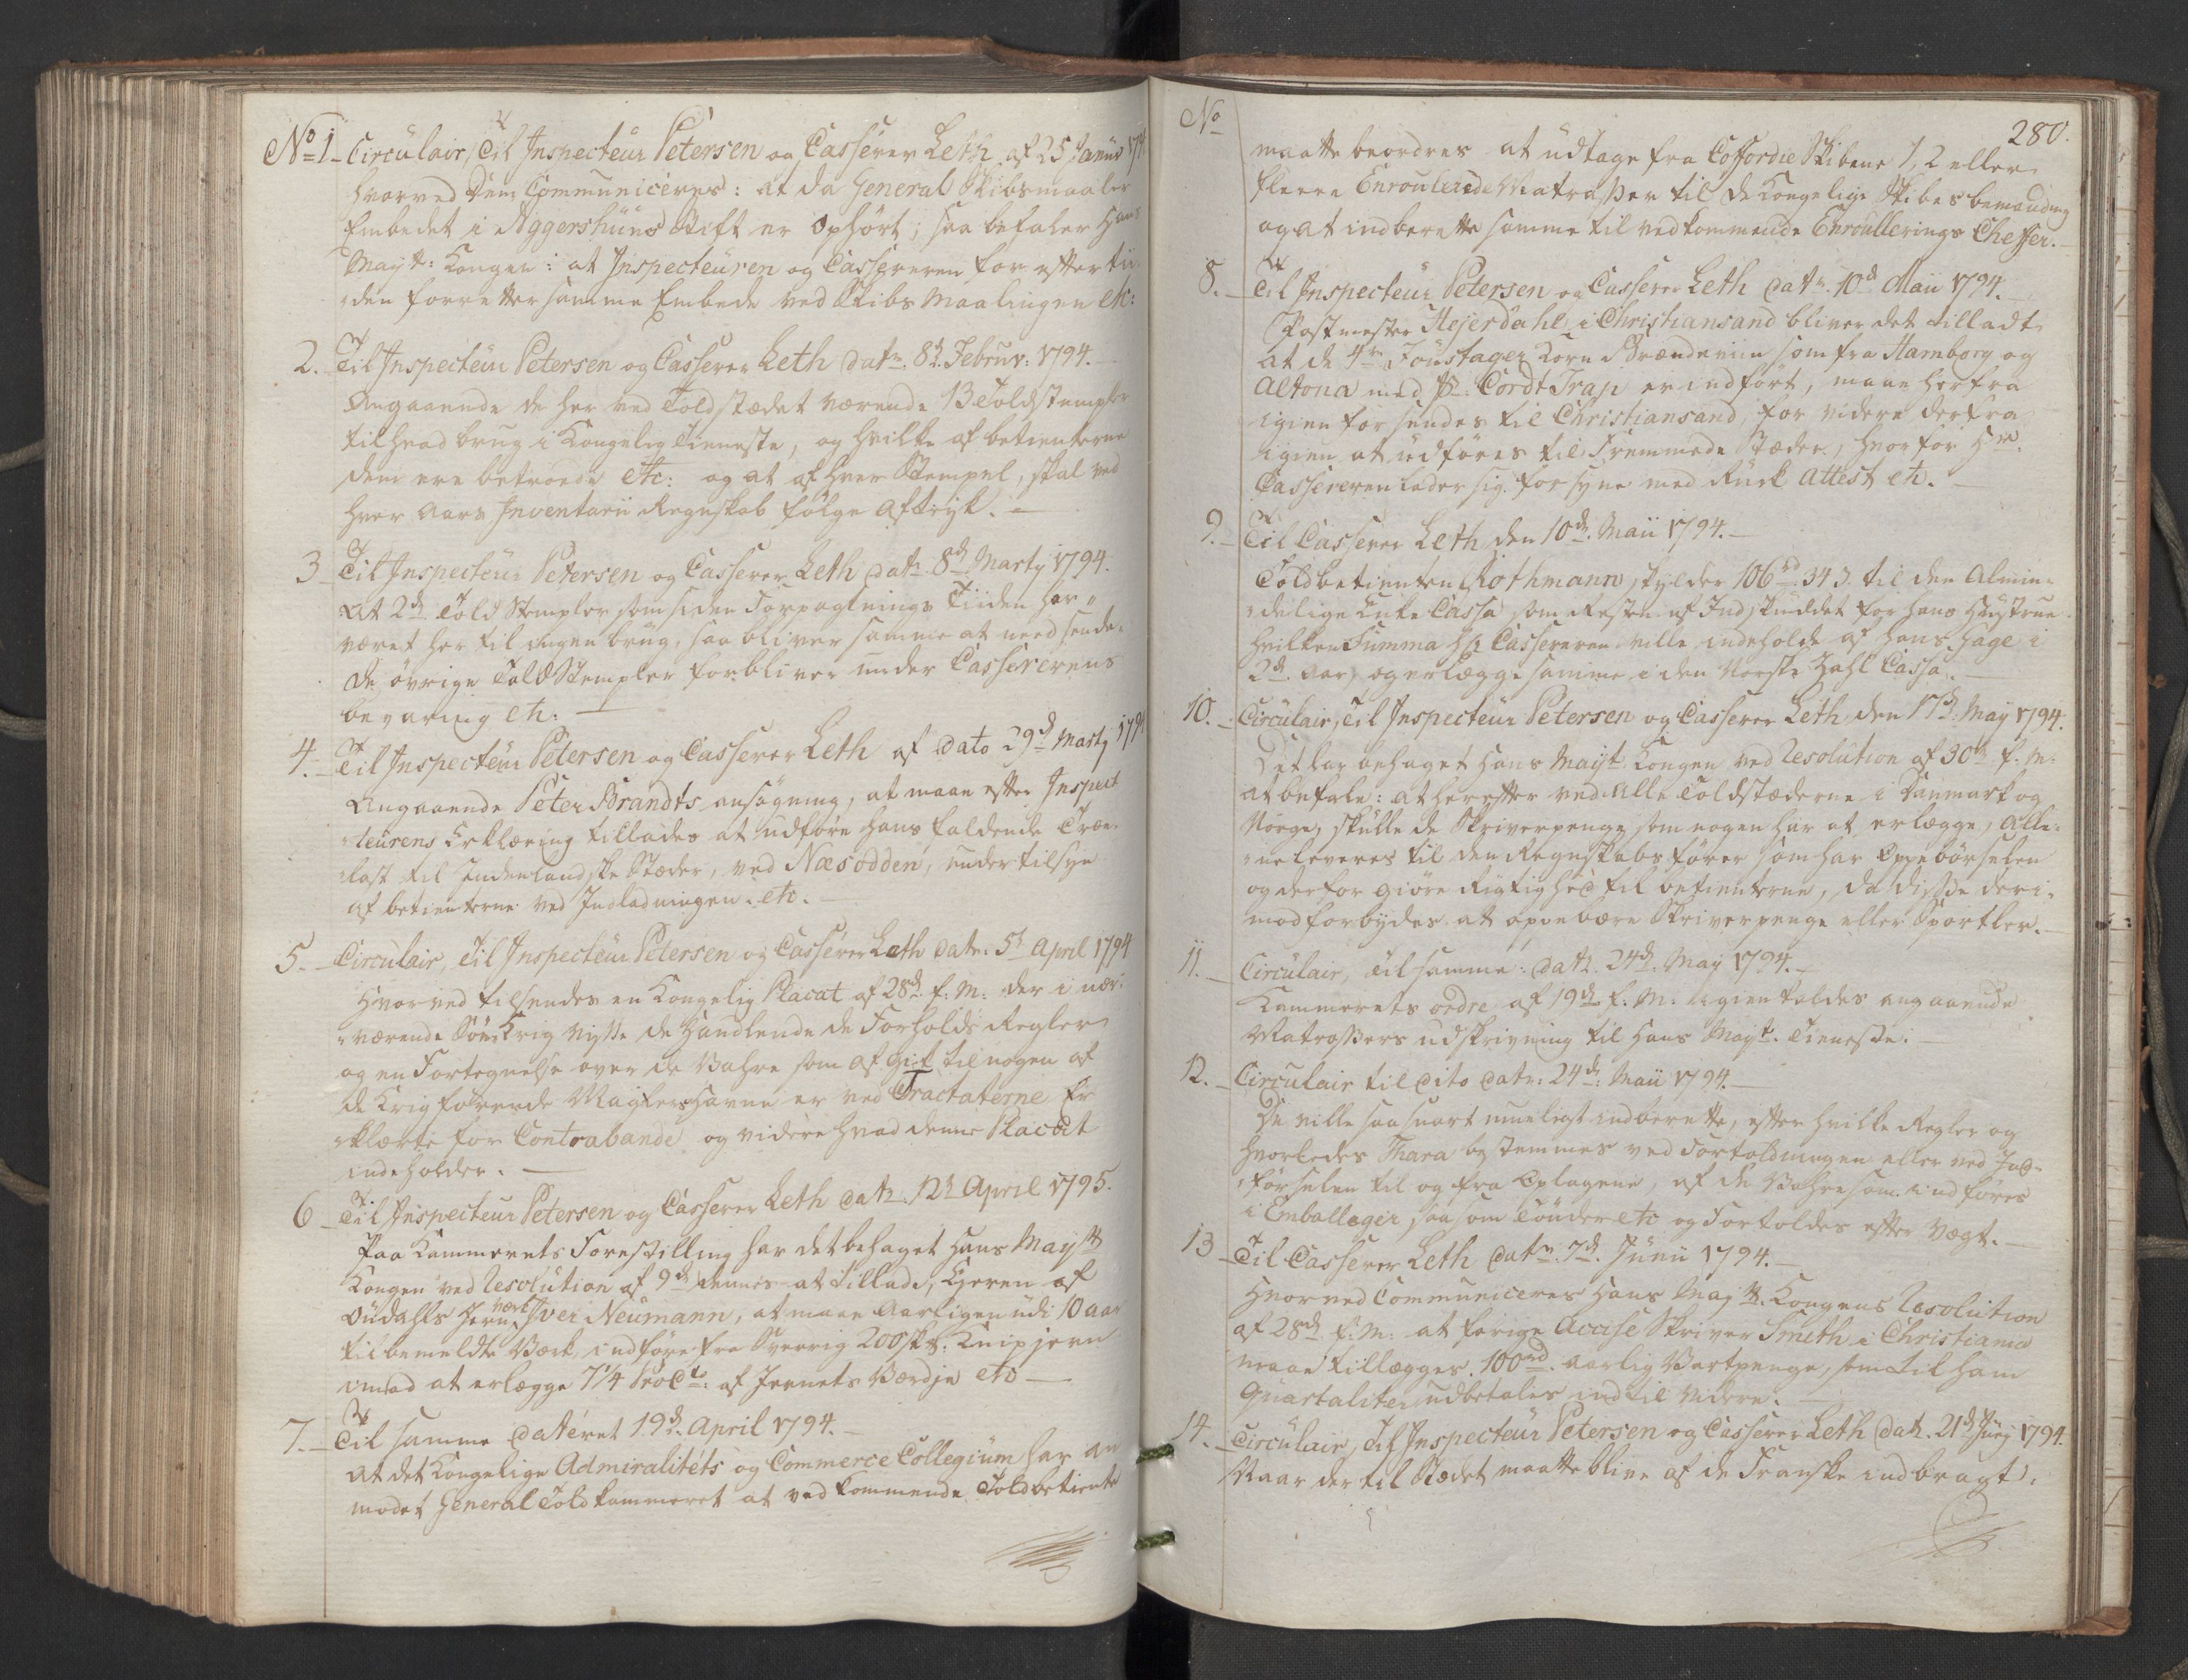 No 1 Circulair, Til Inspecteur Petersen og Casserer Leth af 25 Januar 179
hvorved Dem Communiceres: at da General Skibsmaaler
Embedet i Aggershuus Stift er Ophört; saa befaler Hans
Mayt: Kongen: at Inspecteuren og Cassereren for eftertii¬
den forretter samme Embede ved Skibs Maalingen etc:
2. Til Inspecteur Petersen og Casserer Leth dat: 8de Februr: 1794.
Angaaende de her ved Toldstædet værende 13 Toldstempler
til hvad brug i Kongelig Tieneste, og hvilke af betienterne
dem ere betroede etc: og at af hver Stempel, skal ved
hver Aars Inventarii Regnskab fölge Aftryk.
3 Til Inspecteur Petersen og Casserer Leth dat: 8de Marty 1794.
At 2de Told Stempler som siden Forpagtnings Tiiden har
været her til ingen brug, saa bliver samme at need sende.
De övrige Told Stempler forbliver under Cassererens
bevaring etc.
4. Til Inspecteur Petersen og Casserer Leth af Dato 29de Marty 179
Angaaende Peter Brandts ansögning, at maae efter Inspect
teurens Erklæring tillades at udföre hans faldende Træ¬
last til Indenlandske Stæder, ved Næsodden, under tilsyn
af betienterne ved Indladningen. etc.
5. Circulair, Til Inspecteur Petersen og Casserer Leth dat: 5te April 1794
Hvorved tilsendes en Kongelig Placat af 28de f: M: der i nær¬
værende Söe Krig visse de Handlende de Forholds Regler
og en Fortegnelse over de Vahre som af gik til nogen af
de Krigförende Magters Havne er ved Tractaterne Er
klærte for Contrabande og videre hvad denne Placat
indeholder.
6 Til Inspecteur Petersen og Casserer Leth dat: 12te April 1795.
Paa Kammerets Forestilling har det behaget Hans Mayts
Kongen ved Resolution af 9de dennes at tillade, Eyeren af
Oudahls Jern værk Iver Neumann, at maae Aarligen udi 10 aar
til bemeldte Værk, indföre fra Sverrig 200 sk: Knipjern
imod at erlægge 7 1/4 ProCto: af Jernets Værdie etc
7. Til samme dateret 19de April 1794.
At det Kongelige Admiralitets og Commerce Collegium har an
modet General Toldkammeret at vedkommende Toldbetiente
No
280.
maatte beordres at udtage fra Coffardie Skibene 1, 2 eller
fleere Enroulerede Matrosser til de Kongelige Skibes bemanding
og at indberette samme til vedkommende Enroullerings Cheffer.
8. Til Inspecteur Petersen og Casserer Leth dat: 10de Maii 1794.
Postmester Hejerdahl i Christiansand bliver det tilladt
at de 4re Foustager Korn Brændeviin som fra Hamborg og
Altona med Sr: Cordt Trap er indfört, maae herfra
igien forsendes til Christiansand, for videre derfra
igien at udföres til Fremmede Stæder, hvorfor Hr.
Cassereren lader sig forsyne med Rück Attest etc.
9. Til Casserer Leth den 10de Maii 1794.
Toldbetienten Rothmann skylder 106 rd 34 s. til den Almin¬
delige Enke Cassa som Resten af Indskuddet for hans Hustrue
hvilken Summa Hr Cassereren ville indeholde af hans Gage i
2de Aar, og erlægge samme i den Norske Zahl Cassa.
10. Circulair, Til Inspecteur Petersen og Casserer Leth den 17de May 1794.
Det har behaget Hans Mayt. Kongen ved Resolution af 30te f. M:
at befale: at herefter ved alle Toldstæderne i Danmark og
Norge, skulle de Skriverpenge som nogen har at erlægge, Alle¬
ne leveres til den Regnskabsförer som har Oppebörselen
og derfor giöre Rigtighed til betienterne, da disse deri¬
mod forbydes at oppebære Skriverpenge eller Sportler.
11. Circulair, til samme: dat: 24de May 1794.
Kammerets ordre af 19de f: M: igien kaldes angaaende
Matrossers udskrivning til Hans Mayts. Tieneste.
12. Circulair til Dito dat: 24de Maii 1794.
De ville saa snart mueligt indberette, efter hvilke Regler og
hvorledes Thara bestemmes ved Fortoldningen eller ved Ind¬
förselen til og fra Oplagene, af de Vahre som indföres
i Emballager saasom Tönder etc og Fortoldes efter Vægt.
13 Til Casserer Leth dat: 7de Junii 1794.
Hvorved Communiceres Hans Mayts. Kongens Resolution
af 28de f: M: at forige Accise Skriver Smith i Christiania
maae tillægges 100 rd. aarlig Vartpenge, som til ham
Quartaliter udbetales indtil videre.
14. Circulair, Til Inspecteur Petersen og Casserer Leth dat: 21de Juny 1794.
Naar der til Stædet maatte blive af de Franske indbragt.